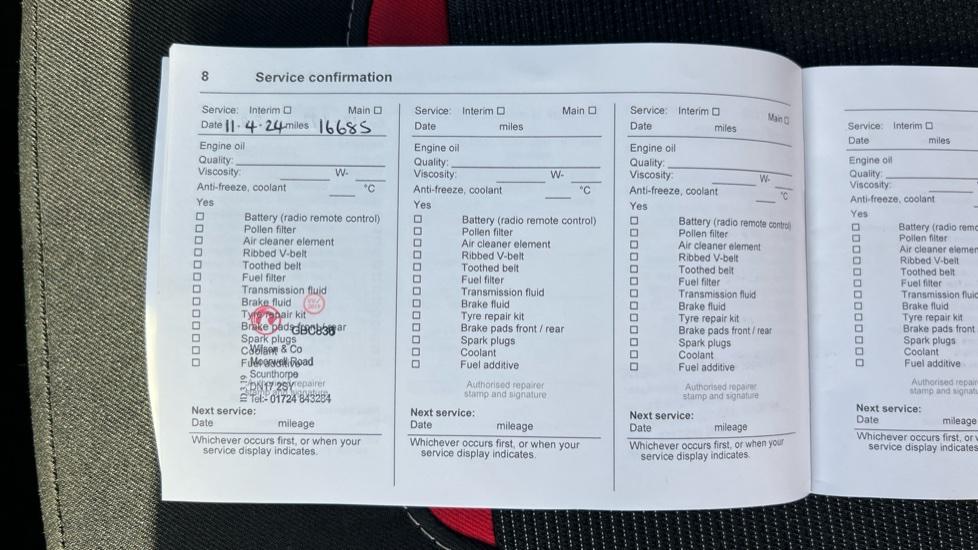 8 Service confirmation
Service: Interim ☐ Main ☐
Date 11-4-24 miles 16685
Engine oil
Quality:
Viscosity: W-
Anti-freeze, coolant °C
Yes
☐ Battery (radio remote control)
☐ Pollen filter
☐ Air cleaner element
☐ Ribbed V-belt
☐ Toothed belt
☐ Fuel filter
☐ Transmission fluid
☐ Brake fluid
☐ Tyre repair kit
☐ Brake pads front / rear
GBC836
☐ Spark plugs
☐ Coolant
Wilson & Co
☐ Fuel additive
Moorwell Road
Scunthorpe
Authorised repairer
DN17 2SY
stamp and signature
Tel:- 01724 843284
Next service:
Date mileage
Whichever occurs first, or when your
service display indicates.
Service: Interim ☐ Main ☐
Date miles
Engine oil
Quality:
Viscosity: W-
Anti-freeze, coolant °C
Yes
☐ Battery (radio remote control)
☐ Pollen filter
☐ Air cleaner element
☐ Ribbed V-belt
☐ Toothed belt
☐ Fuel filter
☐ Transmission fluid
☐ Brake fluid
☐ Tyre repair kit
☐ Brake pads front / rear
☐ Spark plugs
☐ Coolant
☐ Fuel additive
Authorised repairer
stamp and signature
Next service:
Date mileage
Whichever occurs first, or when your
service display indicates.
Service: Interim ☐ Main ☐
Date miles
Engine oil
Quality:
Viscosity: W-
Anti-freeze, coolant °C
Yes
☐ Battery (radio remote control)
☐ Pollen filter
☐ Air cleaner element
☐ Ribbed V-belt
☐ Toothed belt
☐ Fuel filter
☐ Transmission fluid
☐ Brake fluid
☐ Tyre repair kit
☐ Brake pads front / rear
☐ Spark plugs
☐ Coolant
☐ Fuel additive
Authorised repairer
stamp and signature
Next service:
Date mileage
Whichever occurs first, or when your
service display indicates.
Service: Interim ☐
Date miles
Engine oil
Quality:
Viscosity:
Anti-freeze, coolant
Yes
☐ Battery (radio remo
☐ Pollen filter
☐ Air cleaner elemen
☐ Ribbed V-belt
☐ Toothed belt
☐ Fuel filter
☐ Transmission fluid
☐ Brake fluid
☐ Tyre repair kit
☐ Brake pads front
☐ Spark plugs
☐ Coolant
☐ Fuel additive
Authorised repair
stamp and signatu
Next service:
Date mileage
Whichever occurs first, or
service display indicates